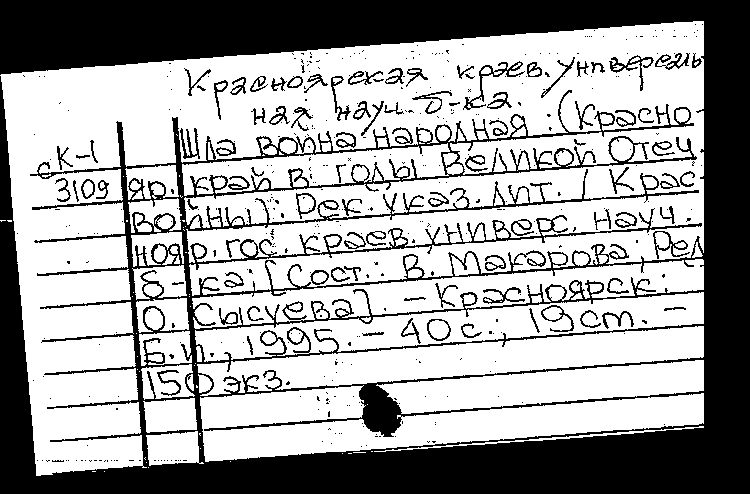 Красноярская краев. универсаль
ная науч. б-ка.
Шла война народная : (Красно-
сК-1
3109 яр. край в годы Великой Отеч.
войны): Рек. указ. лит. / Крас-
нояр. гос. краев. универс. науч.
б-ка; [Сост.: В. Макарова; Ред
О. Сысуева]. - Красноярск:
Б.и., 1995. - 40 с.; 19 cm. -
150 экз.